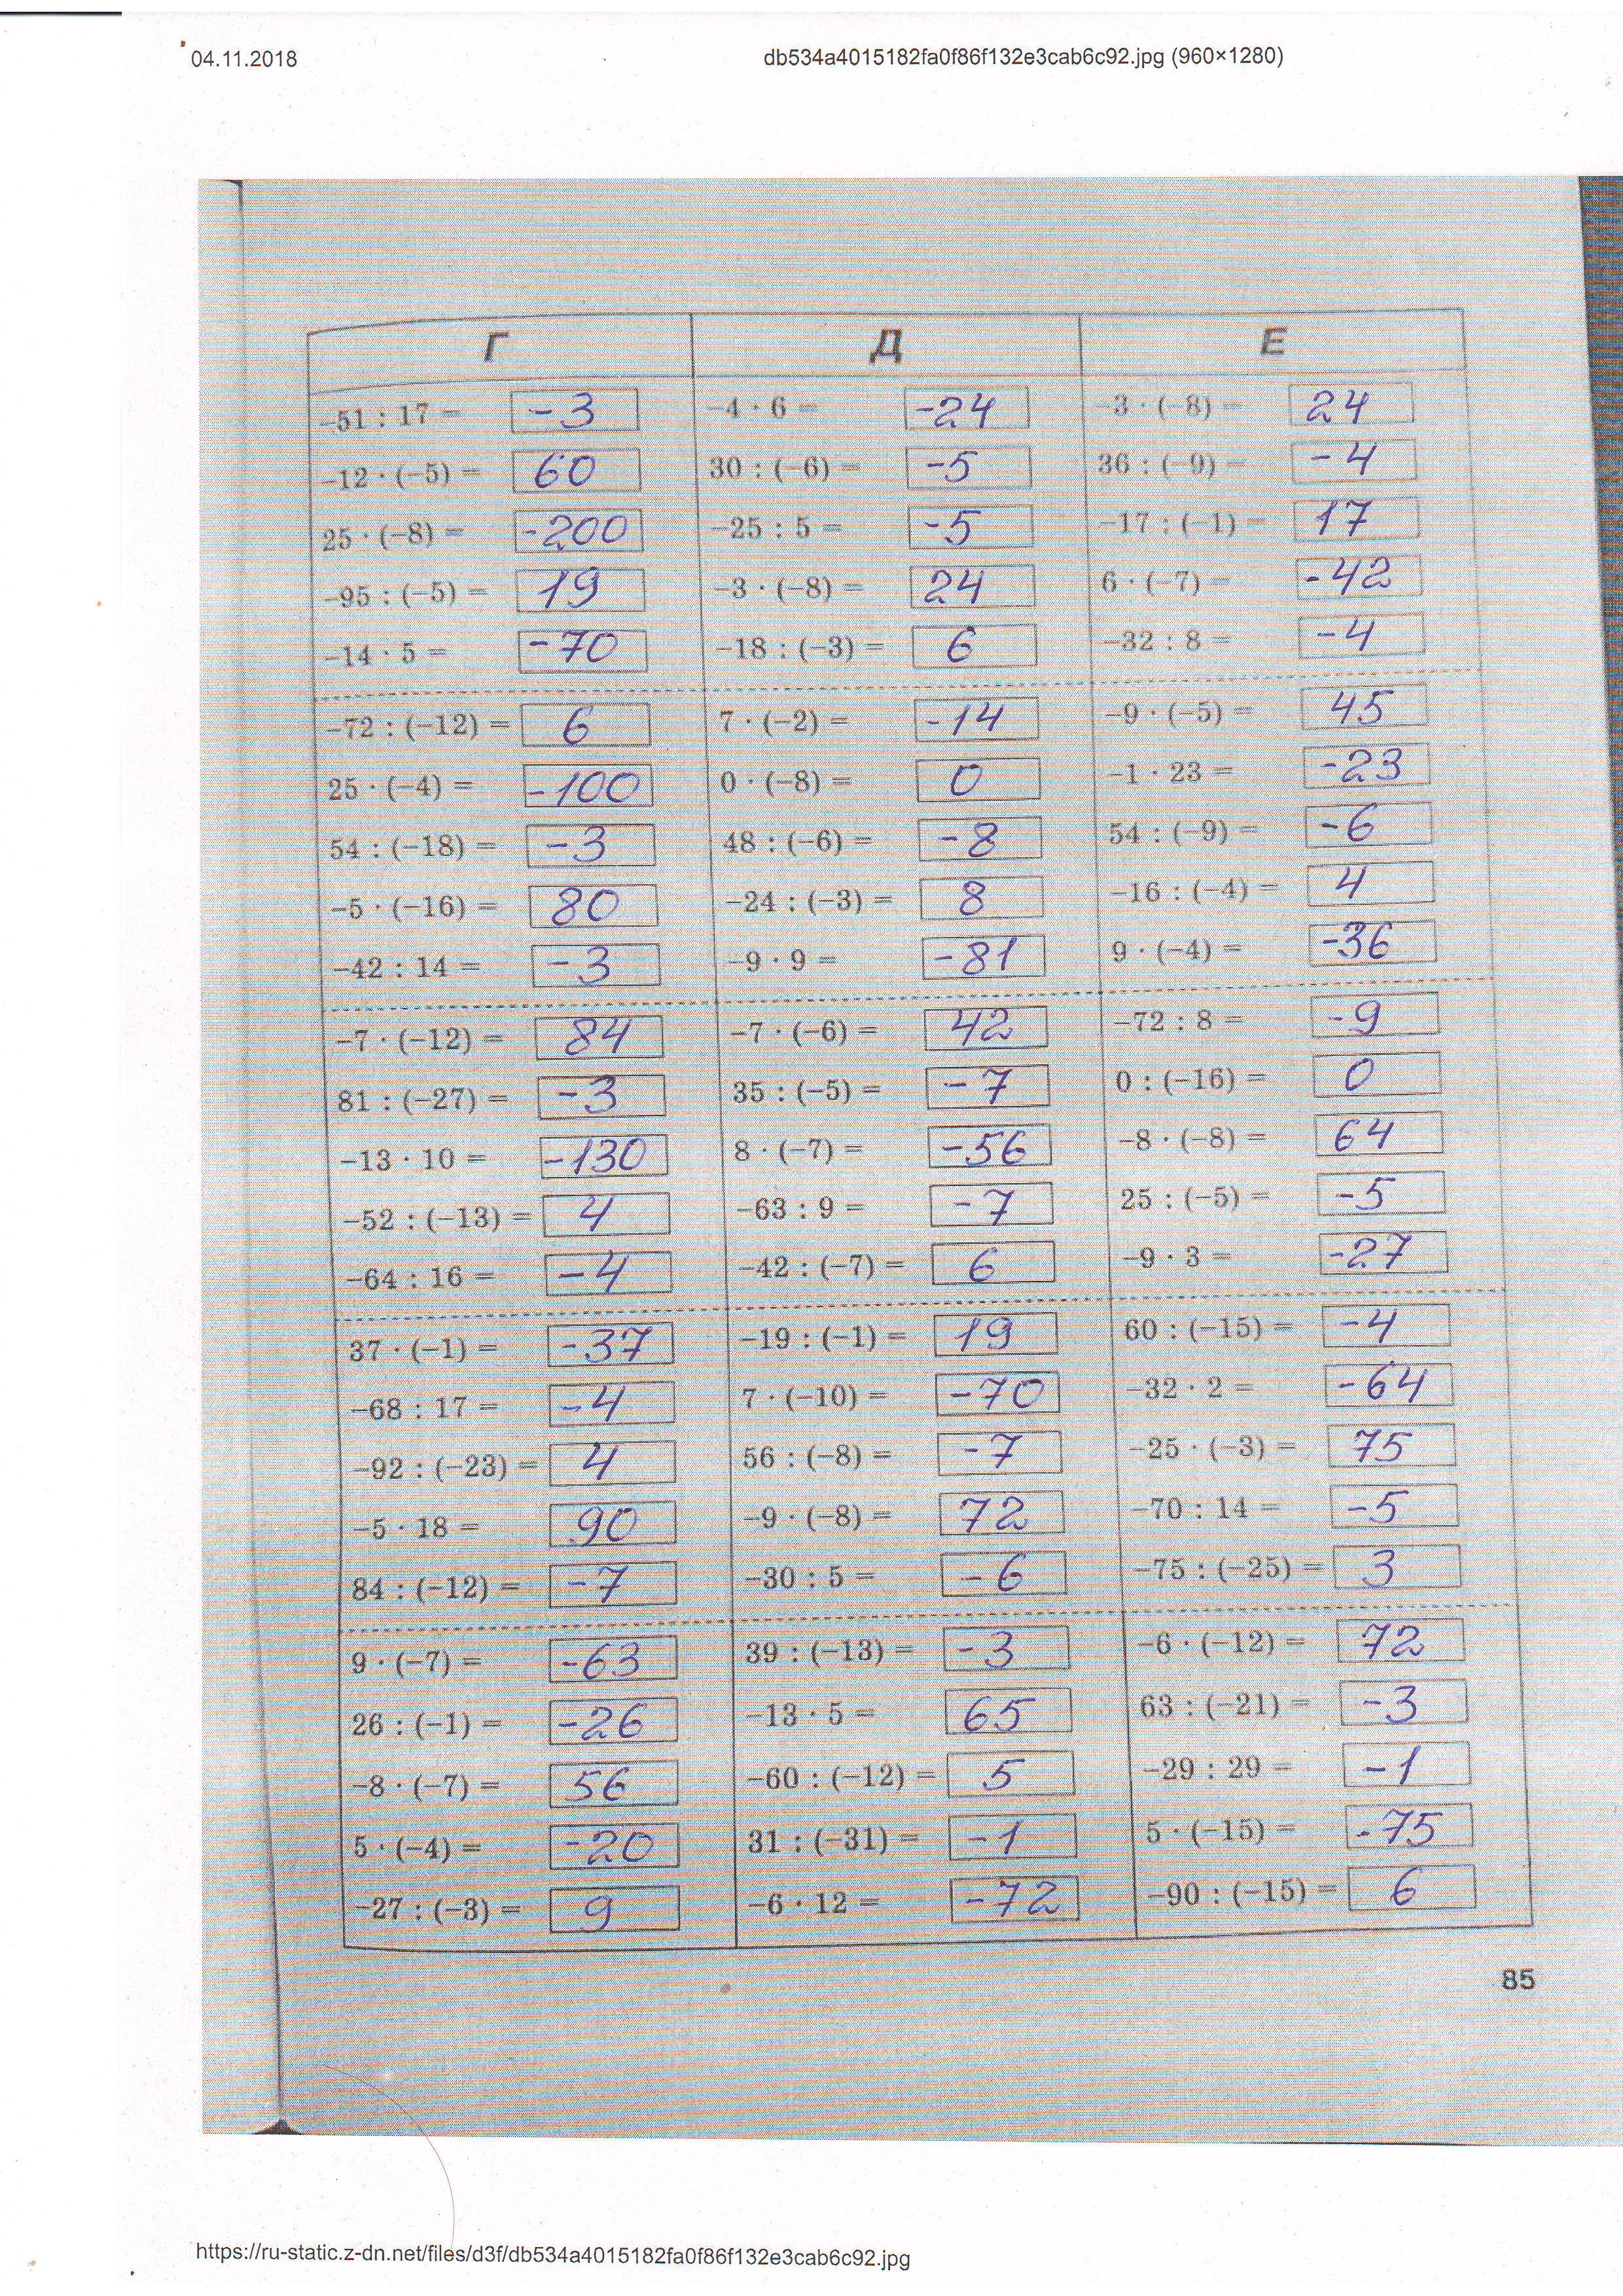 04.11.2018 db534a4015182fa0f86f132e3cab6c92.jpg (960×1280)
Г Д Е
-51 : 17 = -3 -4 · 6 = -24 -3 · (-8) = 24
-12 · (-5) = 60 30 : (-6) = -5 36 : (-9) = -4
25 · (-8) = -200 -25 : 5 = -5 -17 : (-1) = 17
-95 : (-5) = 19 -3 · (-8) = 24 6 · (-7) = -42
-14 · 5 = -70 -18 : (-3) = 6 -32 : 8 = -4
-72 : (-12) = 6 7 · (-2) = -14 -9 · (-5) = 45
25 · (-4) = -100 0 · (-8) = 0 -1 · 23 = -23
54 : (-18) = -3 48 : (-6) = -8 54 : (-9) = -6
-5 · (-16) = 80 -24 : (-3) = 8 -16 : (-4) = 4
-42 : 14 = -3 -9 · 9 = -81 9 · (-4) = -36
-7 · (-12) = 84 -7 · (-6) = 42 -72 : 8 = -9
81 : (-27) = -3 35 : (-5) = -7 0 : (-16) = 0
-13 · 10 = -130 8 · (-7) = -56 -8 · (-8) = 64
-52 : (-13) = 4 -63 : 9 = -7 25 : (-5) = -5
-64 : 16 = -4 -42 : (-7) = 6 -9 · 3 = -27
37 · (-1) = -37 -19 : (-1) = 19 60 : (-15) = -4
-68 : 17 = -4 7 · (-10) = -70 -32 · 2 = -64
-92 : (-23) = 4 56 : (-8) = -7 -25 · (-3) = 75
-5 · 18 = 90 -9 · (-8) = 72 -70 : 14 = -5
84 : (-12) = -7 -30 : 5 = -6 -75 : (-25) = 3
9 · (-7) = -63 39 : (-13) = -3 -6 · (-12) = 72
26 : (-1) = -26 -13 · 5 = 65 63 : (-21) = -3
-8 · (-7) = 56 -60 : (-12) = 5 -29 : 29 = -1
5 · (-4) = -20 31 : (-31) = -1 5 · (-15) = -75
-27 : (-3) = 9 -6 · 12 = -72 -90 : (-15) = 6
85
https://ru-static.z-dn.net/files/d3f/db534a4015182fa0f86f132e3cab6c92.jpg